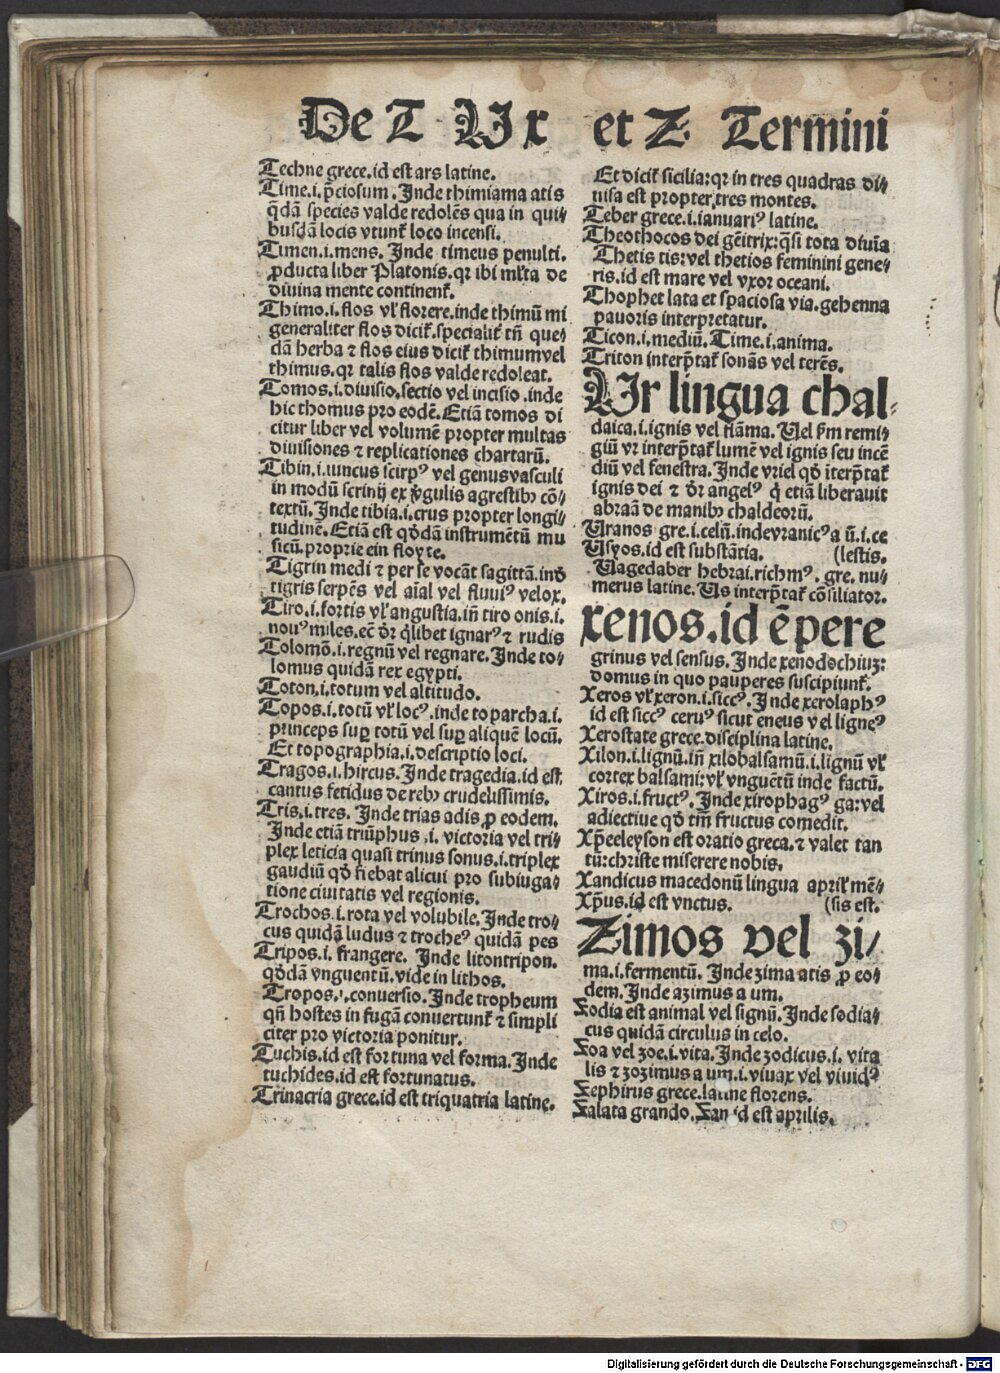 De T Ux et Z Termini
Techne grece.id est ars latine.
Time.i.p̄ciosum.Inde thimiama atis
q̄dā species valde redolēs qua in qui⸗
busdā locis vtunt᷑ loco incensi.
Timen.i.mens. Inde timeus penulti.
ꝓducta liber Platonis.qꝛ ibi ml̓ta de
diuina mente continent᷑.
Thimo.i.flos vl̓ florere.inde thimū mi
generaliter flos dicit᷑.specialit᷑ tn̄ que⸗
dā herba ⁊ flos eius dicit᷑ thimum vel
thimus.qꝛ talis flos valde redoleat.
Tomos.i.diuisio.sectio vel incisio.inde
hic thomus pro eodē.Etiā tomos di
citur liber vel volumē propter multas
diuisiones ⁊ replicationes chartarū.
Tibin.i.iuncus scirpꝰ vel genus vasculi
in modū scrinij ex v̓gulis agrestibꝫ cō⸗
textū.Inde tibia.i.crus propter longi⸗
tudinē.Etiā est qd̄dam instrumētū mu
sicū.proprie ein floyte.
Tigrin medi ⁊ perse vocāt sagittā.inđ
tigris serpēs vel aīal vel fluuiꝰ velox.
Tiro.i.fortis vl̓ angustia.in̄ tiro onis.i.
nouꝰ miles.ec̄ dr̄ qͥlibet ignarꝰ ⁊ rudis
Tolomō.i.regnū vel regnare.Inde to⸗
lomus quidā rex egypti.
Toton.i.totum vel altitudo.
Topos.i.totū vl̓ locꝰ.inde toparcha.i.
princeps suꝑ totū vel suꝑ aliquē locū.
Et topographia.i.descriptio loci.
Tragos.i.hircus.Inde tragedia.id est
cantus fetidus de rebꝫ crudelissimis.
Tris.i.tres. Inde trias adis ꝓ eodem.
Inde etiā triūphus.i. victoria vel tri⸗
plex leticia quasi trinus sonus.i.triplex
gaudiū qđ fiebat alicui pro subiuga⸗
tione ciuitatis vel regionis.
Trochos.i.rota vel volubile.Inde tro⸗
cus quidā ludus ⁊ trocheꝰ quidā pes
Tripos.i. frangere. Inde litontripon.
qd̄dā vnguentū.vide in lithos.
Tropos.i.conuersio.Inde tropheum
qn̄ hostes in fugā conuertunt᷑ ⁊ simpli
citer pro victoria ponitur.
Tuchis.id est fortuna vel forma.Inde
tuchides.id est fortunatus.
Trinacria grece.id est triquatria latine.
Et dicit᷑ sicilia:qꝛ in tres quadras di⸗
uisa est propter tres montes.
Teber grece.i.ianuariꝰ latine.
Theothocos dei gēitrix:q̄si tota diuīa
Thetis tis:vel thetios feminini gene⸗
ris.id est mare vel vxor oceani.
Thophet lata et spaciosa via.gehenna
pauoris interpretatur.
Ticon.i.mediū.Time.i.anima.
Triton interp̄tat᷑ sonās vel terēs.
Ur lingua chal⸗
daica.i.ignis vel flāma.Uel ẜm remi⸗
giū vr interp̄tat᷑ lumē vel ignis seu incē
diū vel fenestra.Inde vriel qđ īterp̄tat᷑
ignis dei ⁊ dr̄ angelꝰ qͥ etiā liberauit
abraā de manibꝫ chaldeorū.
Uranos gre.i.celū.inde vranicꝰ a ū.i.ce
Usyos.id est substātia. (lestis.
Uagedaber hebrai.richmꝰ. gre. nu⸗
merus latine. Us interp̄tat᷑ cōsiliator.
xenos.id ē pere
grinus vel sensus. Inde xenodochiuꝫ:
domus in quo pauperes suscipiunt᷑.
Xeros vl̓ xeron.i.siccꝰ. Inde xerolaphꝰ
id est siccꝰ ceruꝰ sicut eneus vel ligneꝰ
Xerostate grece.disciplina latine.
Xilon.i.lignū.in̄ xilobalsamū.i.lignū vl̓
cortex balsami:vl̓ vnguētū inde factū.
Xiros.i.fructꝰ. Inde xirophagꝰ ga:vel
adiectiue qđ tm̄ fructus comedit.
Xp̄eeleyson est oratio greca.⁊ valet tan
tū:christe miserere nobis.
Xandicus macedonū lingua april̓ mē⸗
Xp̄us.id est vnctus. (sis est.
Zimos vel zi⸗
ma.i.fermentū. Inde zima atis ꝓ eo⸗
dem.Inde azimus a um.
Zodia est animal vel signū.Inde sodia⸗
cus quidā circulus in celo.
Zoa vel zoe.i.vita. Inde zodicus.i. vita
lis ⁊ zozimus a um.i.viuax vel viuidꝰ
Zephirus grece.latine florens.
Zalata grando.Zan id est aprilis.
Digitalisierung gefördert durch die Deutsche Forschungsgemeinschaft - DFG